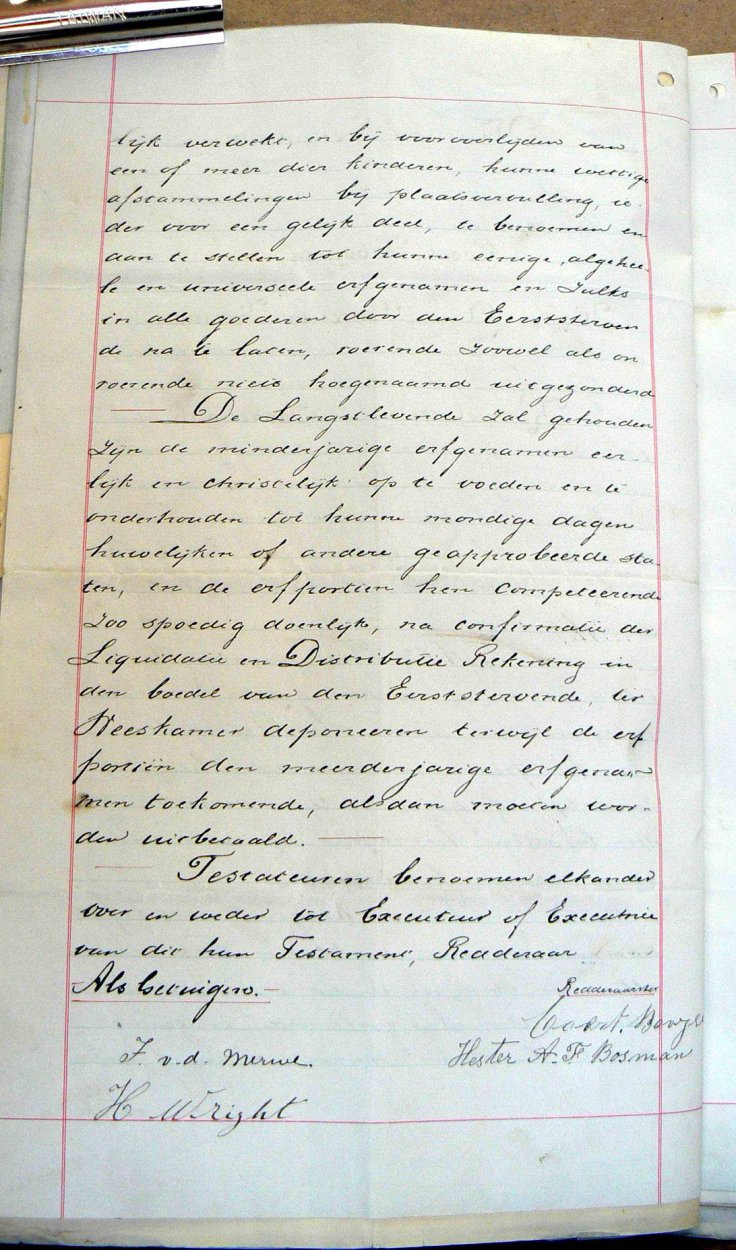 LATMAN
lijk verwekt, en bij vooroverlijden van
een of meer dier kinderen, hunne wettige
afstammelingen bij plaatsvervulling, ie-
der voor een gelijk deel, te benoemen en
aan te stellen tot hunne eenige, algehee-
le en universeele erfgenamen en zulks
in alle goederen door den Eerststerven
de na te laten, roerende zoowel als on
roerende niets hoegenaamd uitgezonderd
De Langstlevende zal gehouden
zijn de minderjarige erfgenamen eer-
lijk en christelijk op te voeden en te
onderhouden tot hunne mondige dagen
huwelijken of andere geapprobeerde sta-
ten, en de erfportien hen competeerende
zoo spoedig doenlijk, na confirmatie der
Liquidatie en Distributie Rekening in
den boedel van den Eerststervende, ter
Weeskamer deponeeren terwijl de erf
portiën den meerderjarige erfgena-
men toekomende, alsdan moeten wor-
den uitbetaald.
Testateuren benoemen elkander
over en weder tot Executeur of Executrice
van dit hun Testament, Redderaar
Als getuigen.
Redderaarster
Coert.
J. v.d. Merwe.
Hester A. F Bosman
H Wright